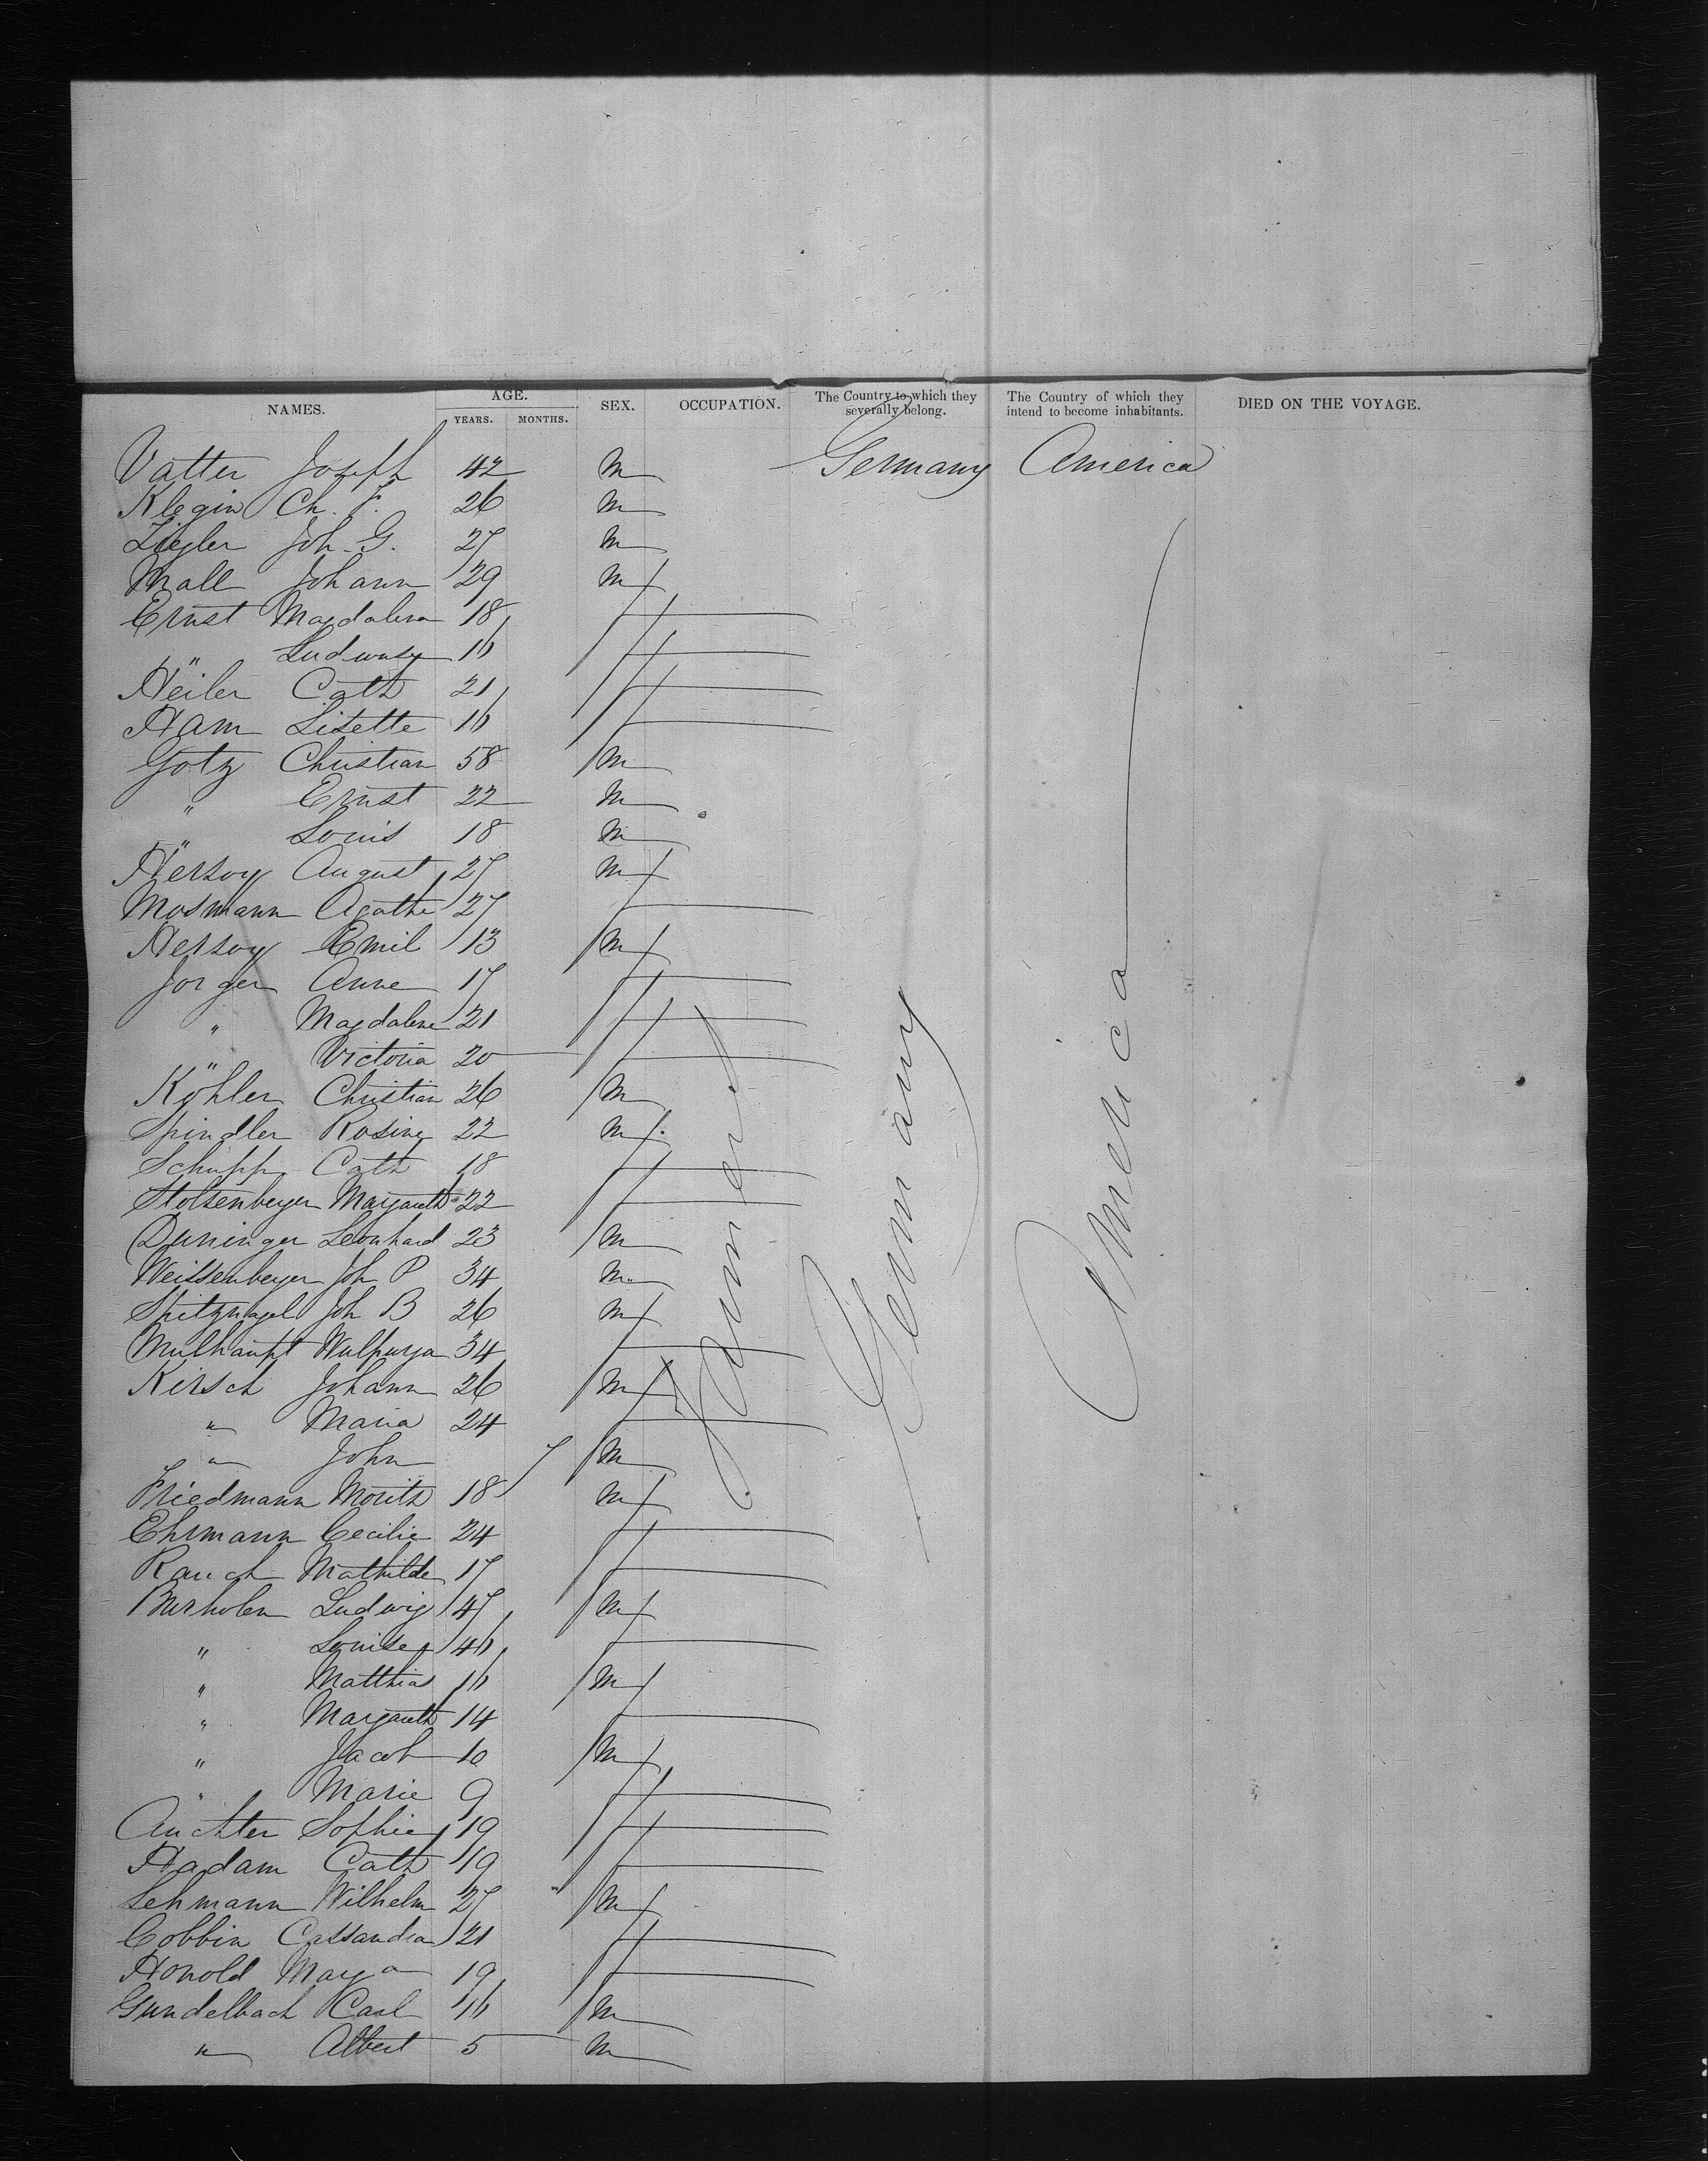 NAMES. AGE. YEARS. MONTHS. SEX. OCCUPATION. The Country to which they severally belong. The Country of which they intend to become inhabitants. DIED ON THE VOYAGE.
Vatter Joseph 42 M Germany America
Klegin Ch. F. 26 M
Ziegler Joh. G. 27 M
Mall Johann 29 M
Ernst Magdalena 18 f
" Ludwig 16 f
Heiler Cath 21 f
Ham Lisette 16 f
Gotz Christian 58 M
" Ernst 22 M
" Louis 18 M
Herzog August 27 M
Mosmann Agathe 27 f
Herzog Emil 13 M
Jorger Anne 17 f
" Magdalene 21 f
" Victoria 20 f
Köhler Christian 26 M
Spindler Rosine 22 M
Schupp Cath 18 f
Stolzenberger Margareth 22 f
Deininger Leonhard 23 M
Weissenberger Joh P 34 M
Spitznagel Joh B 26 M
Mulhaupt Walpurga 34 f
Kirsch Johann 26 M
" Maria 24 f
" John 7 M
Friedmann Moritz 18 M
Ehrmann Cecilie 24 f
Rauch Mathilde 17 f
Ludwig 47 M
" Louise 46 f
" Matthias 16 M
" Margareth 14 f
" Jacob 10 M
" Marie 9 f
Auchter Sophie 19 f
Hadam Cath 19 f
Lehmann Wilhelm 27 M
Cobbin Cassandra 21 f
Honold Marya 19 f
Gundelbach Carl 16 M
" Albert 5 M
Farmer
Germany
America